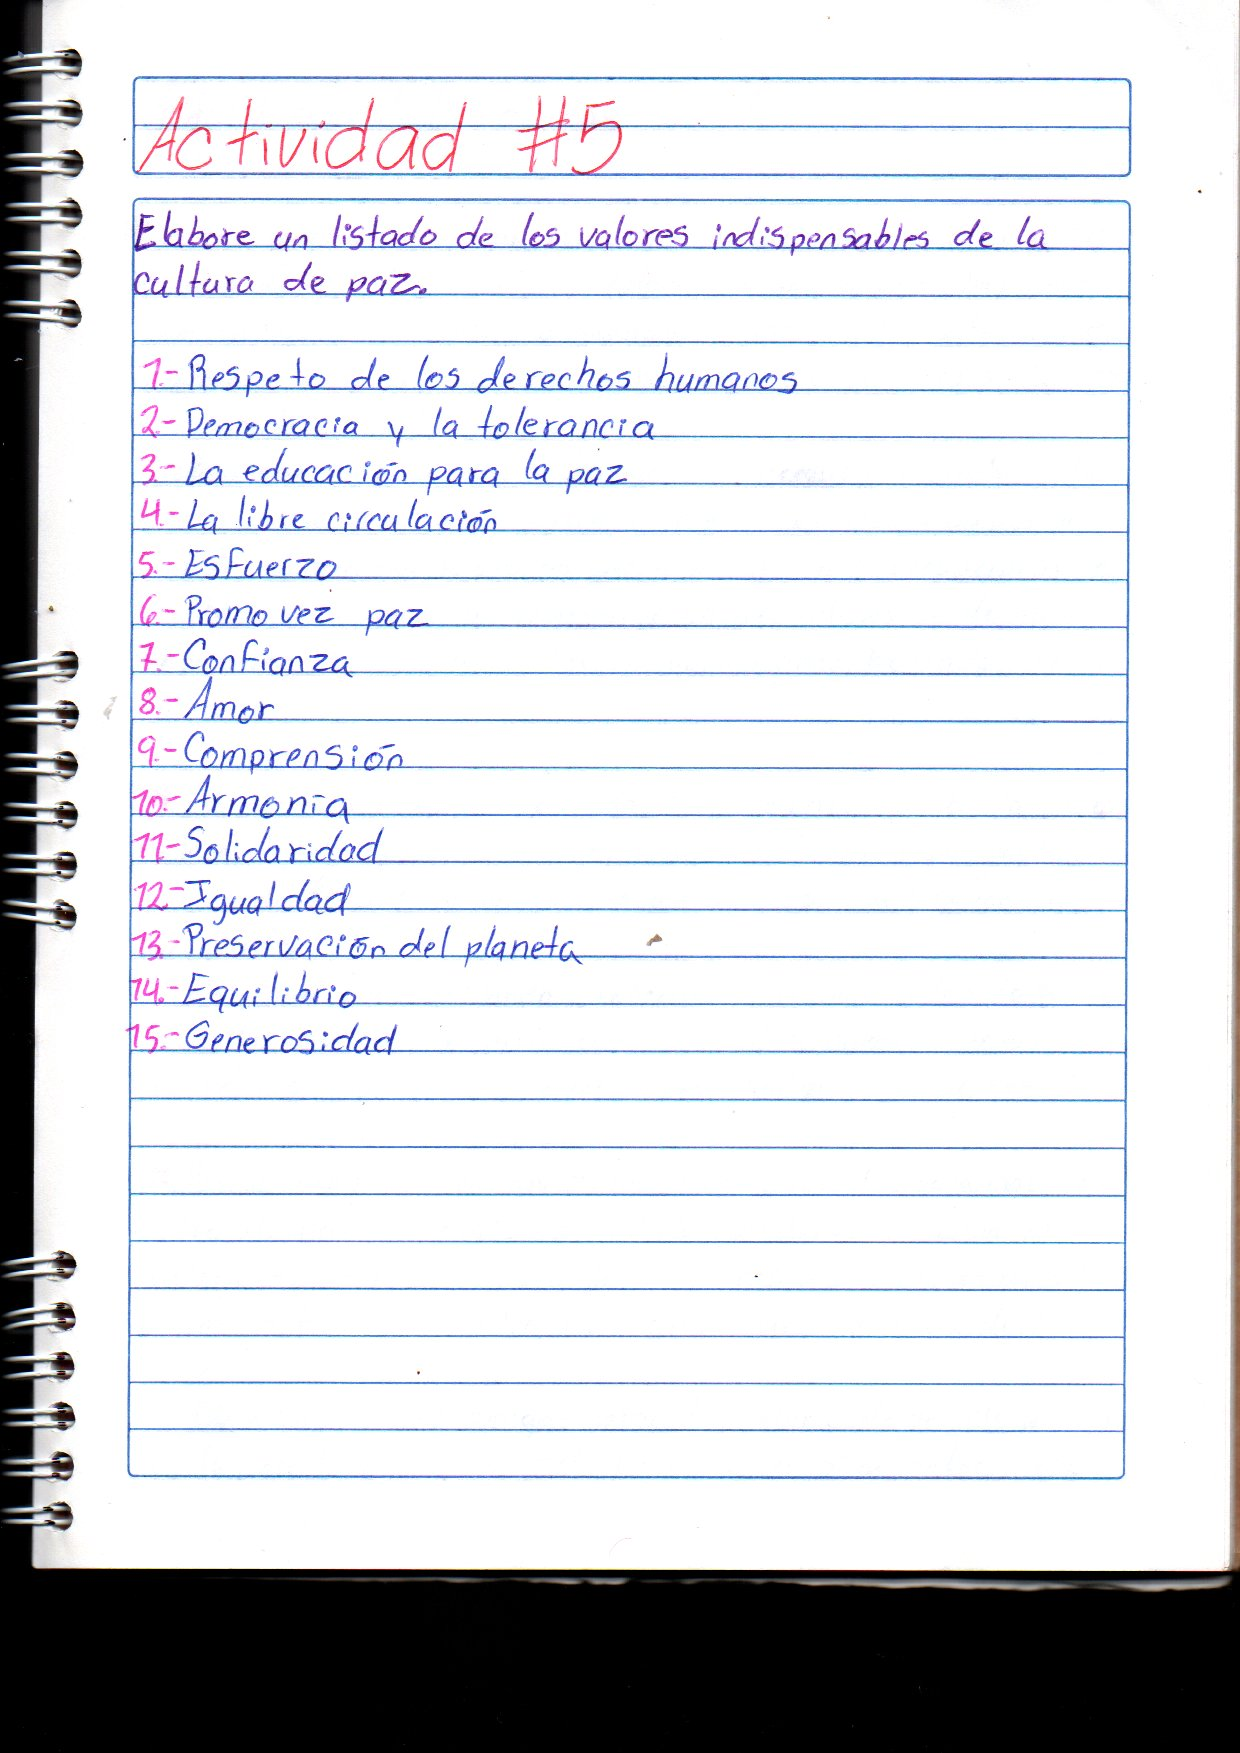 Actividad #5
Elabore un listado de los valores indispensables de la
cultura de paz.
1.- Respeto de los derechos humanos
2.- Democracia y la tolerancia
3.- La educación para la paz
4.- La libre circulación
5.- Esfuerzo
6.- Promovez paz
7.- Confianza
8.- Amor
9.- Comprensión
10.- Armonía
11.- Solidaridad
12.- Igualdad
13.- Preservación del planeta
14.- Equilibrio
15.- Generosidad